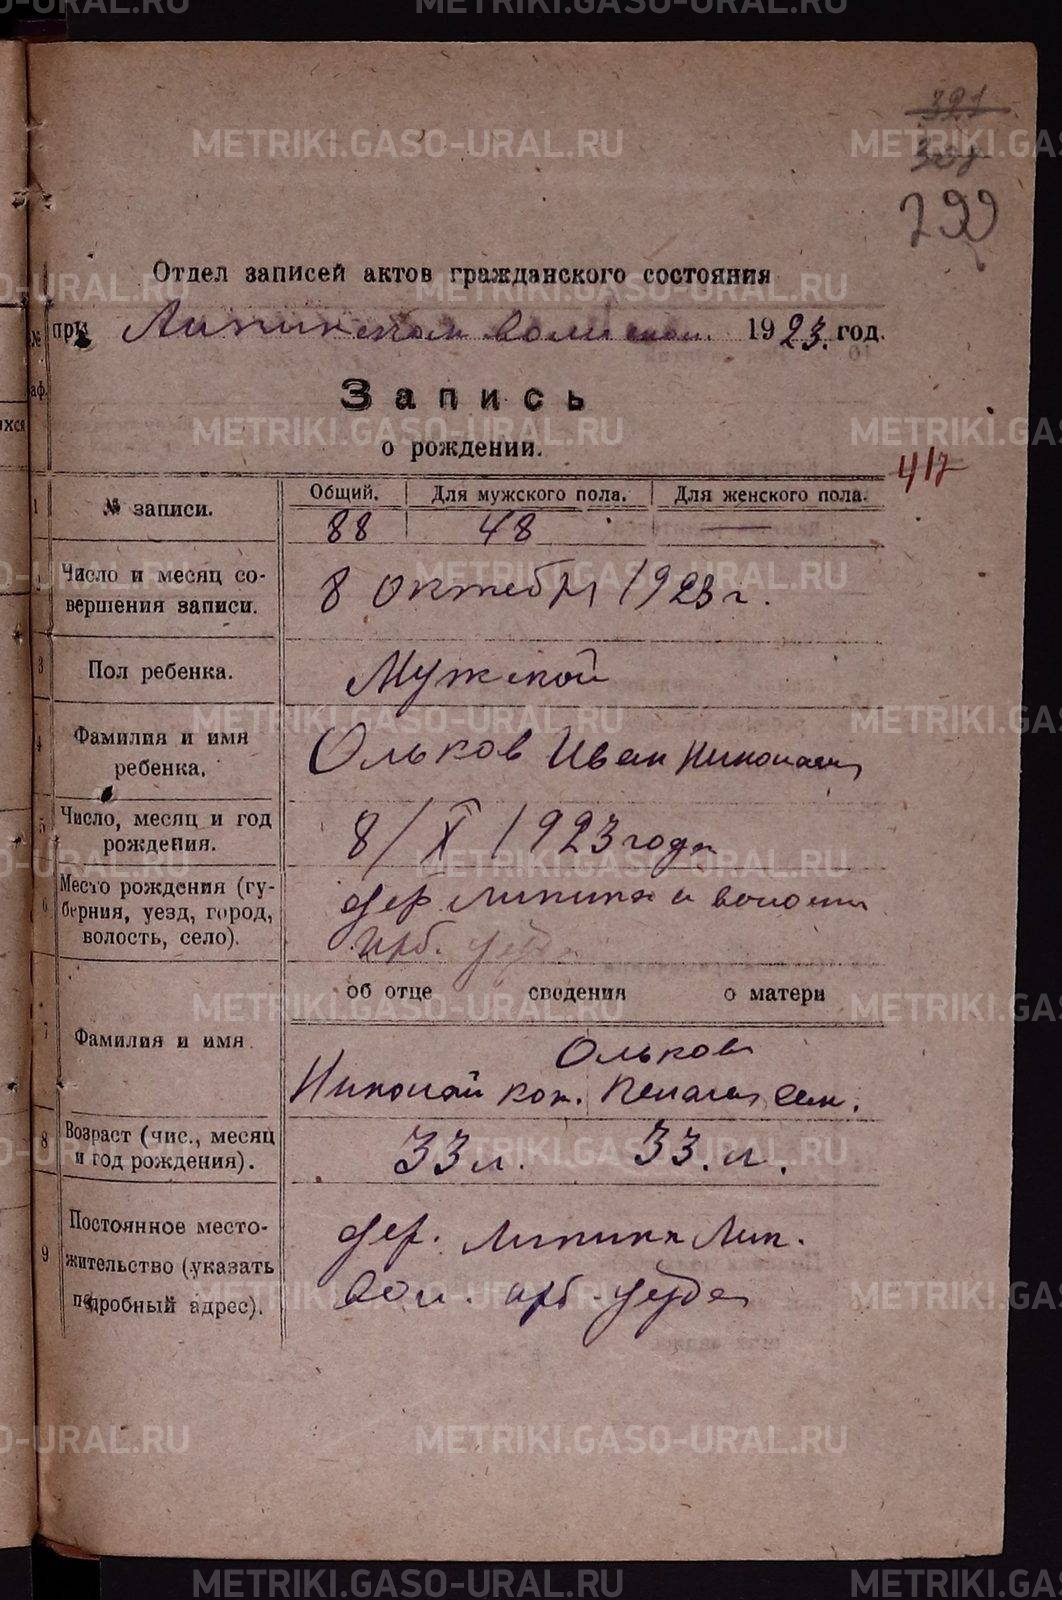 321
308
299
Отдел записей актов гражданского состояния
при Липинском волиспол. 1923. год.
Запись
о рождении.
417
1 № записи. Общий. Для мужского пола. Для женского пола.
88 48 —
2 Число и месяц совершения записи. 8 октября 1923 г.
3 Пол ребенка. Мужской
4 Фамилия и имя ребенка. Ольков Иван Николаев
5 Число, месяц и год рождения. 8/X 1923 года
6 Место рождения (губерния, уезд, город, волость, село). дер Липина и волости
ирб. уезда
об отце сведения о матери
7 Фамилия и имя Ольков
Николай Пелагея Сем.
8 Возраст (чис., месяц и год рождения). 33 л. 33. л.
9 Постоянное местожительство (указать подробный адрес). дер. Липина Лип.
вол. ирб. уезда
METRIKI.GASO-URAL.RU